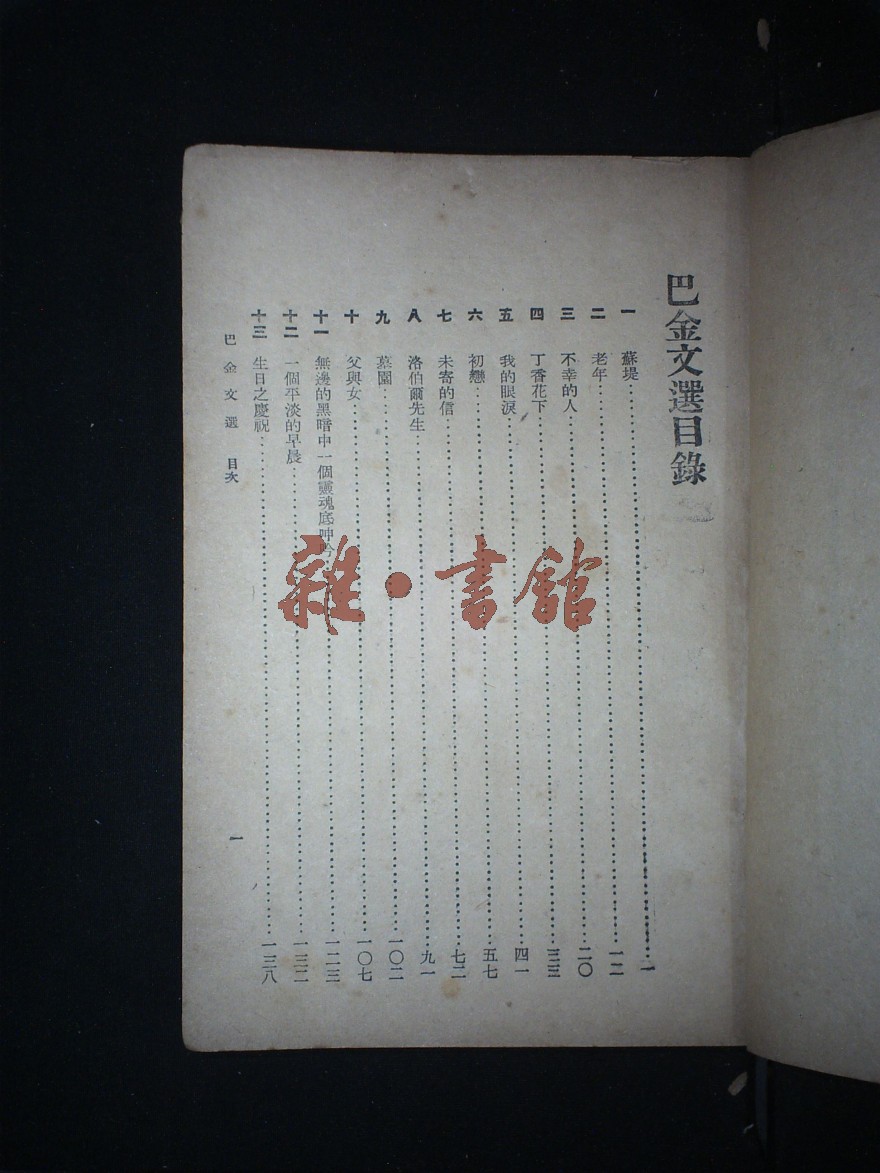 巴金文選目錄
一 蘇堤……一
二 老年……一二
三 不幸的人……二〇
四 丁香花下……三三
五 我的眼淚……四一
六 初戀……五七
七 未寄的信……七二
八 洛伯爾先生……九一
九 墓園……一〇二
十 父與女……一〇七
十一 無邊的黑暗中一個靈魂底呻吟……一二三
十二 一個平淡的早晨……一三二
十三 生日之慶祝……一三八
巴金文選 目次 一
雜·書館